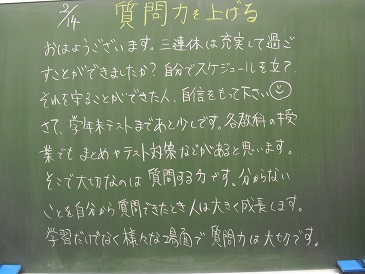 2/14 質問力を上げる
おはようございます。三連休は充実して過ご
すことができましたか？自分でスケジュールを立て、
それを守ることができた人、自信をもって下さい
さて、学年末テストまであと少しです。各教科の授
業でもまとめやテスト対策などがあると思います。
そこで大切なのは質問する力です。分からない
ことを自分から質問できたとき人は大きく成長します。
学習だけでなく様々な場面で質問力は大切です。